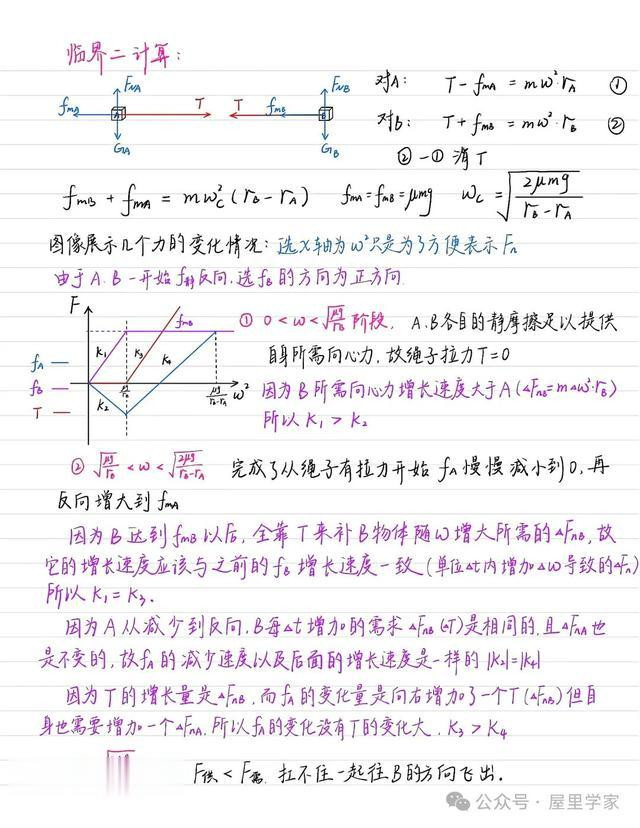 临界二计算:
对A: T - fmA = mω²·rA ①
FNA FNB
fmA A T T fmB B
对B: T + fmB = mω²·rB ②
GA GB
②-① 消T
fmB + fmA = mωc²(rB - rA) fmA = fmB = μmg ωc = √(2μmg/(rB - rA))
图像展示几个力的变化情况: 选x轴为ω²只是为了方便表示Fn
由于A.B一开始f静反向,选fB的方向为正方向.
F
fmB
① 0<ω<√(μg/rB) 阶段, A.B各自的静摩擦足以提供
k1 k3 k4
自身所需向心力, 故绳子拉力T=0
fA
fB
T
k2
μg/rB
μg/(rB-rA) ω²
因为B所需向心力增长速度大于A(△FnB=m△ω²·rB)
所以 k1 > k2
② √(μg/rB) < ω < √(2μg/(rB-rA)) 完成了从绳子有拉力开始 fA慢慢减小到0,再
反向增大到fmA
因为B达到fmB以后, 全靠T来补B物体随ω增大所需的△FnB,故
它的增长速度应该与之前的fB增长速度一致(单位△t内增加△ω导致的△Fn)
所以 k1 = k3.
因为A从减少到反向,B每△t增加的需求△FnB(△T)是相同的,且△FnA也
是不变的,故fA的减少速度以及后面的增长速度是一样的 |k2|=|k4|
因为T的增长量是△FnB,而fA的变化量是向右增加了一个T(△FnB)但自
身也需要增加一个△FnA,所以fA的变化没有T的变化大. k3 > k4
F供 < F需. 扛不住一起往B的方向飞出.
公众号·屋里学家